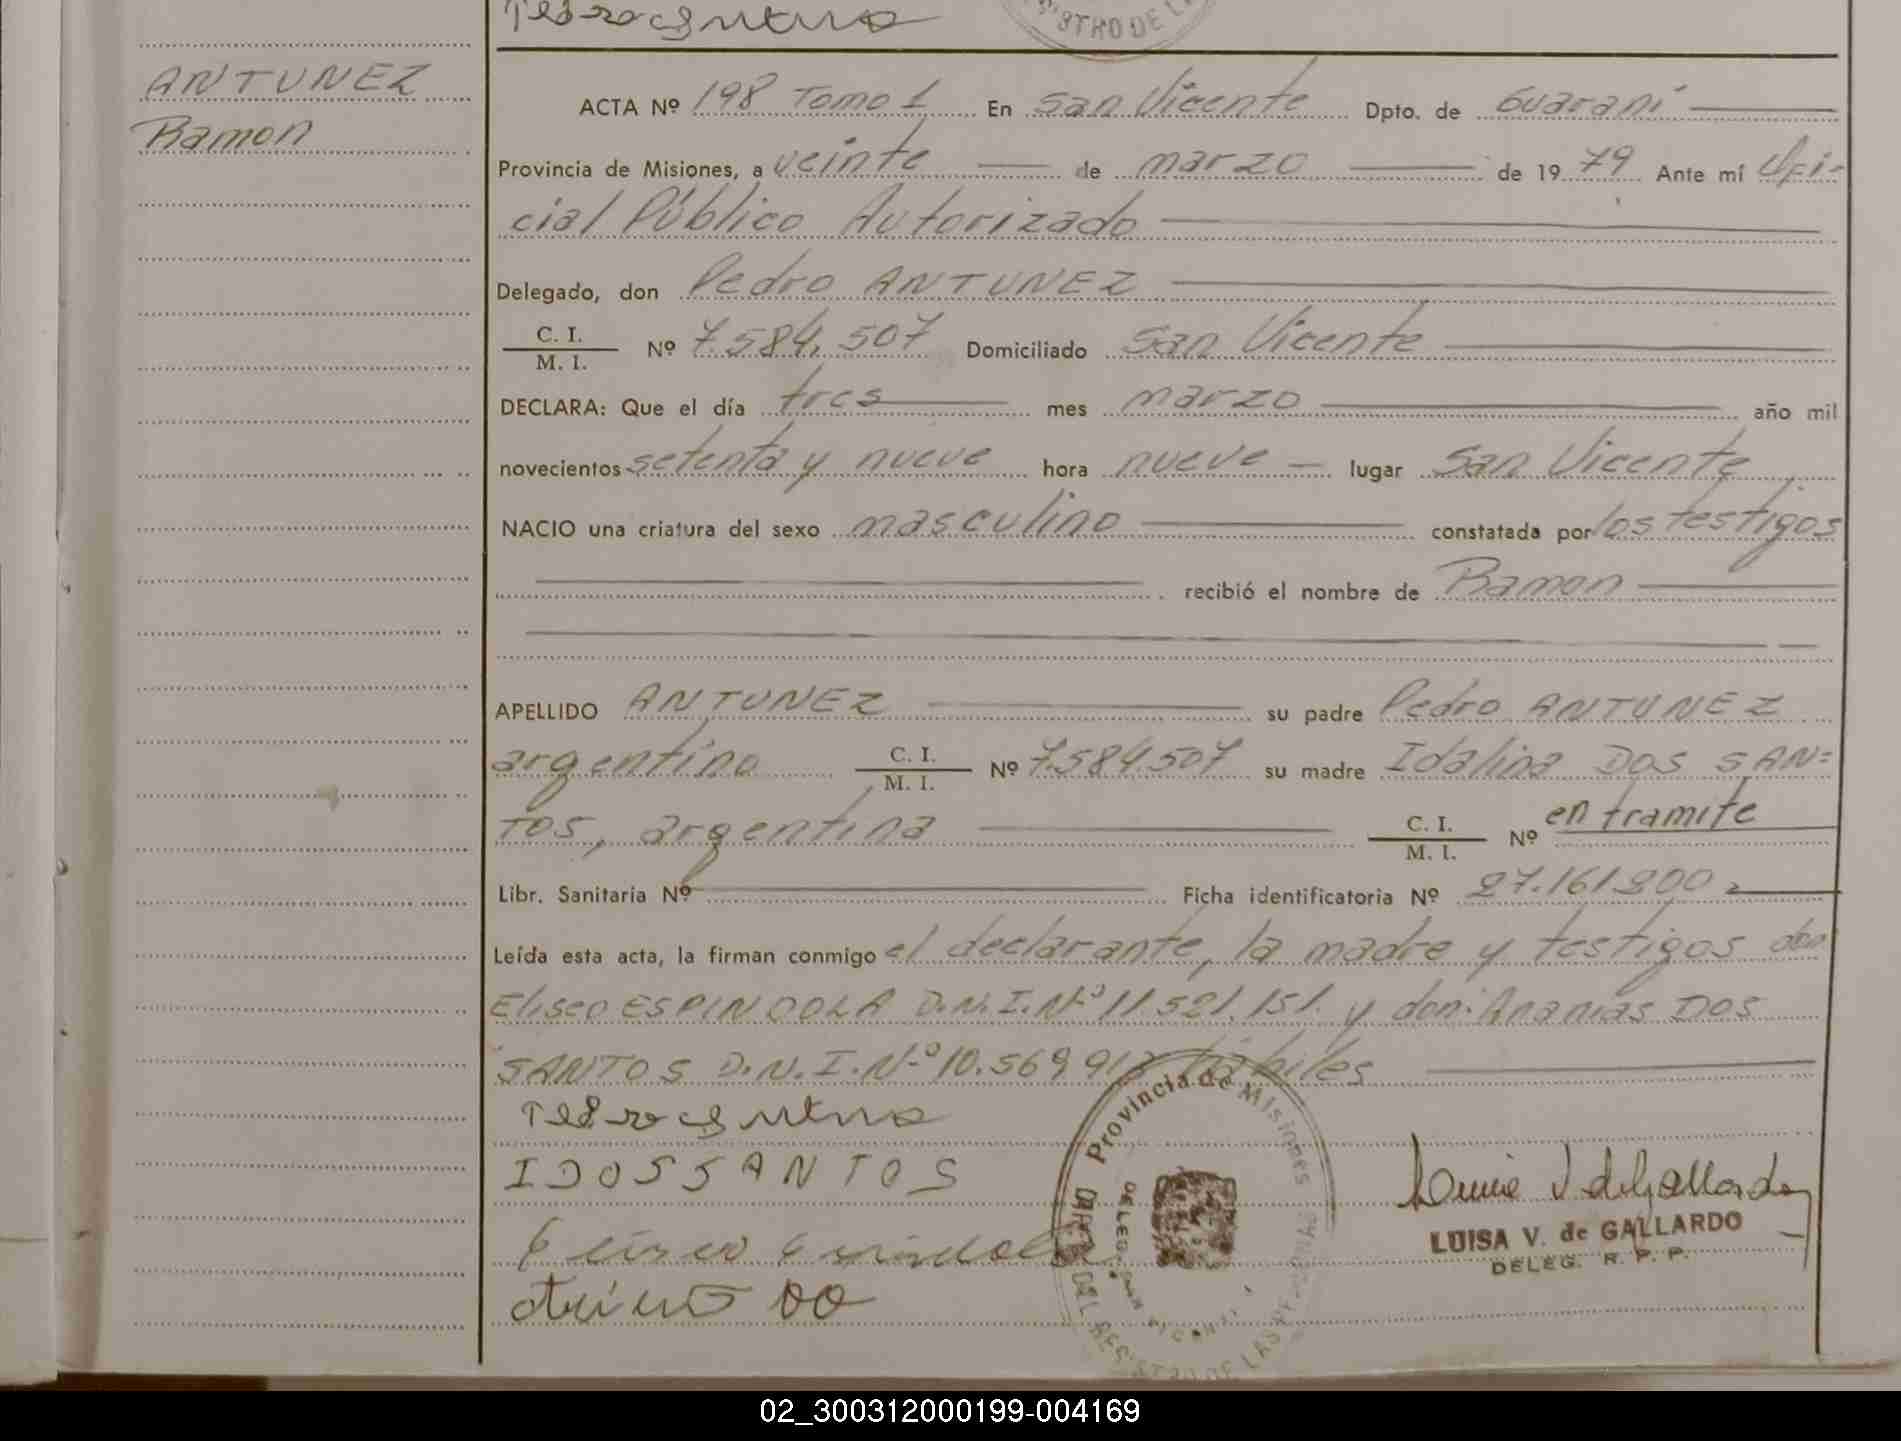 Pedro Antunes
STRO DE LA
ANTUNEZ
Ramon
ACTA Nº 198 Tomo 1 En San Vicente Dpto. de Guaraní
Provincia de Misiones, a veinte de marzo de 1979 Ante mí Ofi-
cial Público Autorizado
Delegado, don Pedro ANTUNEZ
C. I.
M. I. Nº 7.584.507 Domiciliado San Vicente
DECLARA: Que el día tres mes marzo año mil
novecientos setenta y nueve hora nueve lugar San Vicente
NACIO una criatura del sexo masculino constatada por los testigos
recibió el nombre de Ramon
APELLIDO ANTUNEZ su padre Pedro ANTUNEZ
argentino C. I. M. I. Nº 7.584.507 su madre Idalina DOS SAN=
TOS, argentina C. I. M. I. Nº en tramite
Libr. Sanitaria Nº Ficha identificatoria Nº 27.161.200
Leída esta acta, la firman conmigo el declarante, la madre y testigos don
Eliseo ESPINDOLA D.N.I.Nº 11.521.151. y don: Ananias DOS
SANTOS D.N.I.Nº 10.569.913 hábiles
Pedro Antunes
I DOSSANTOS
Eliseo Espindola
Provincia de Misiones
DEL REGISTRO DE LAS PERSONAS
LUISA V. de GALLARDO
DELEG. R. P. P.
02_300312000199-004169